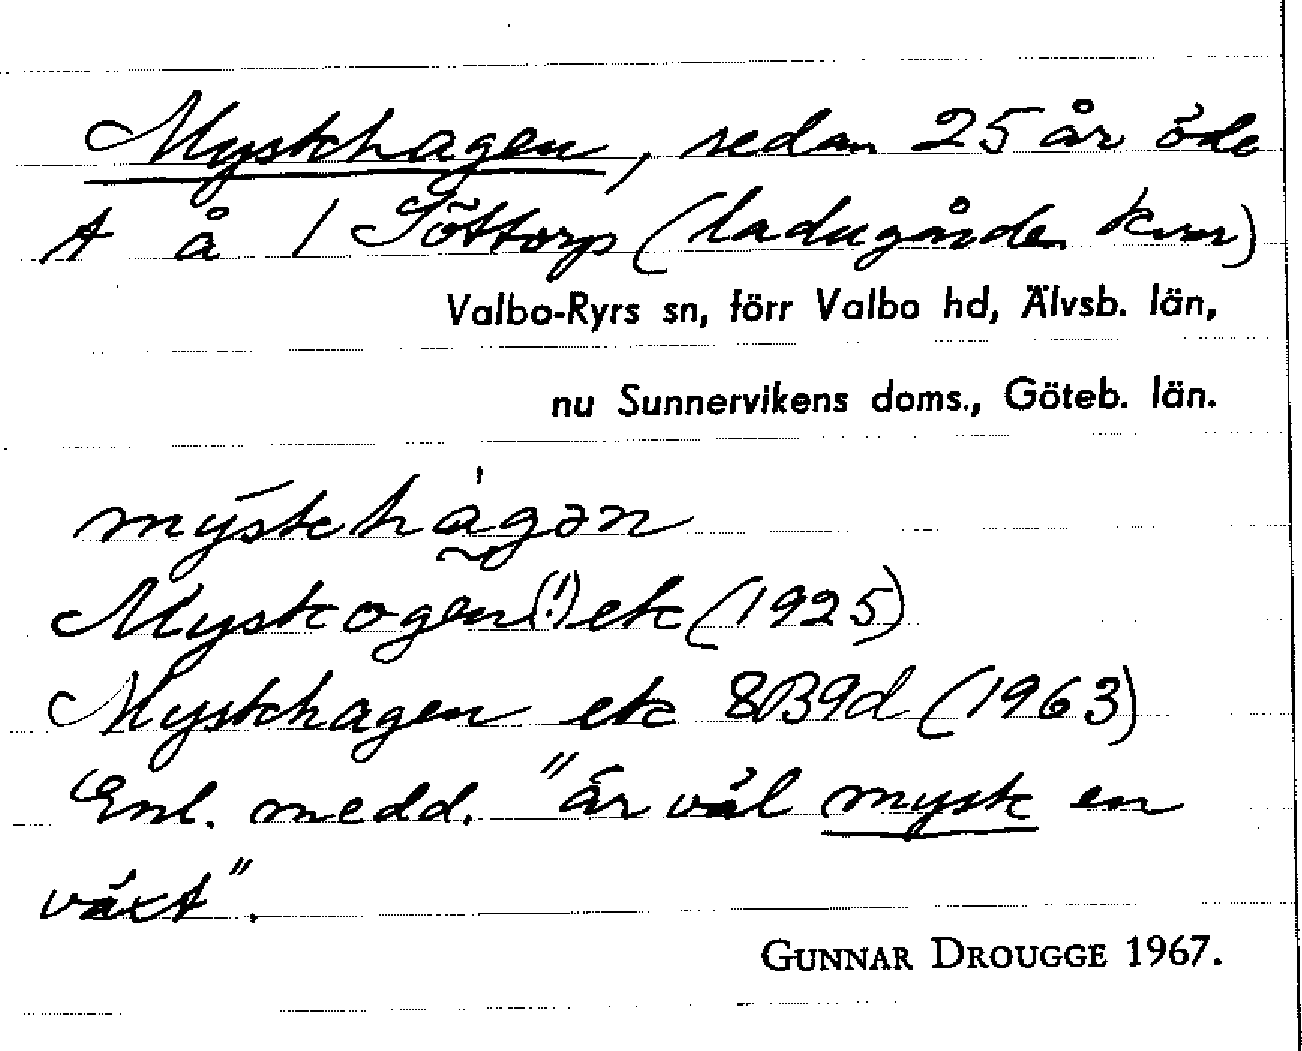 Myskhagen, sedan 25 år öde
t å 1 Söttorp (ladugården kvar)
Valbo-Ryrs sn, förr Valbo hd, Älvsb. län,
nu Sunnervikens doms., Göteb. län.
mȳskhàgən
Myskogen(!) ek (1925)
Myskhagen ek 8B9d (1963)
Enl. medd. "är väl mysk en
växt".
GUNNAR DROUGGE 1967.